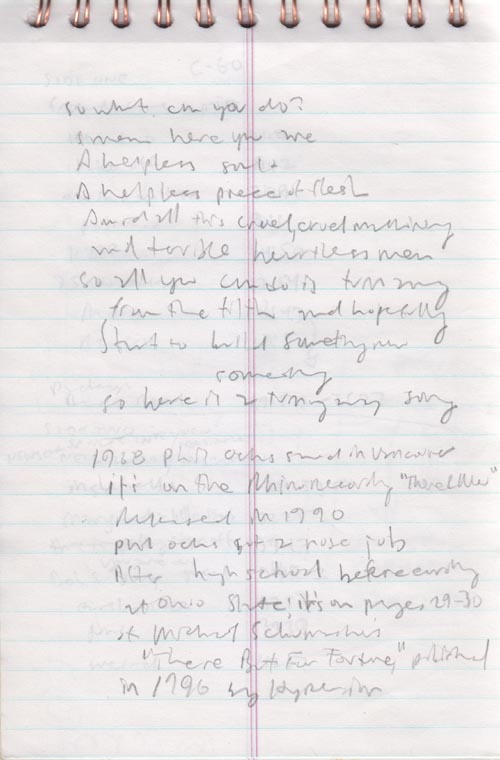 so what can you do?
I mean here you are
A helpless soul
A helpless piece of flesh
Amid all this cruel, cruel machinery
and terrible heartless men
so all you can do is turn away
from the filth and hopefully
Start to build something new
someday
so here is a turning away song
1968 Phil ochs said in Vancouver
it's on the Rhino recording "There &
Released in 1990
phil ochs got a nose job
After high school before
at Ohio State; it's on pages 29-30
of Michael Schumacher's
"There But For Fortune," published
in 1996 by Hyperion